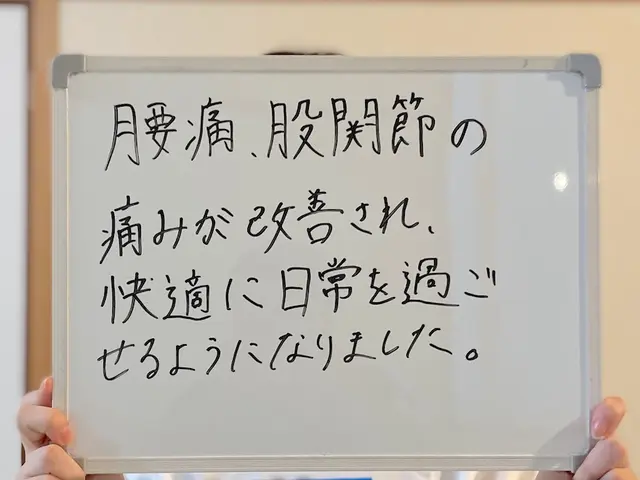 腰痛、股関節の
痛みが改善され、
快適に日常を過ご
せるようになりました。